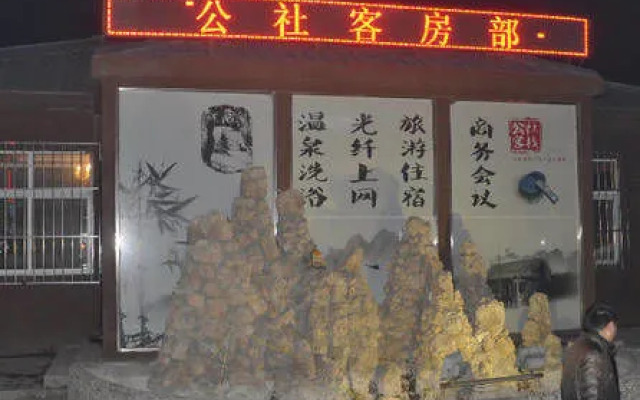 公社客房部
商务会议
旅游住宿
光纤上网
温泉洗浴
公社客栈